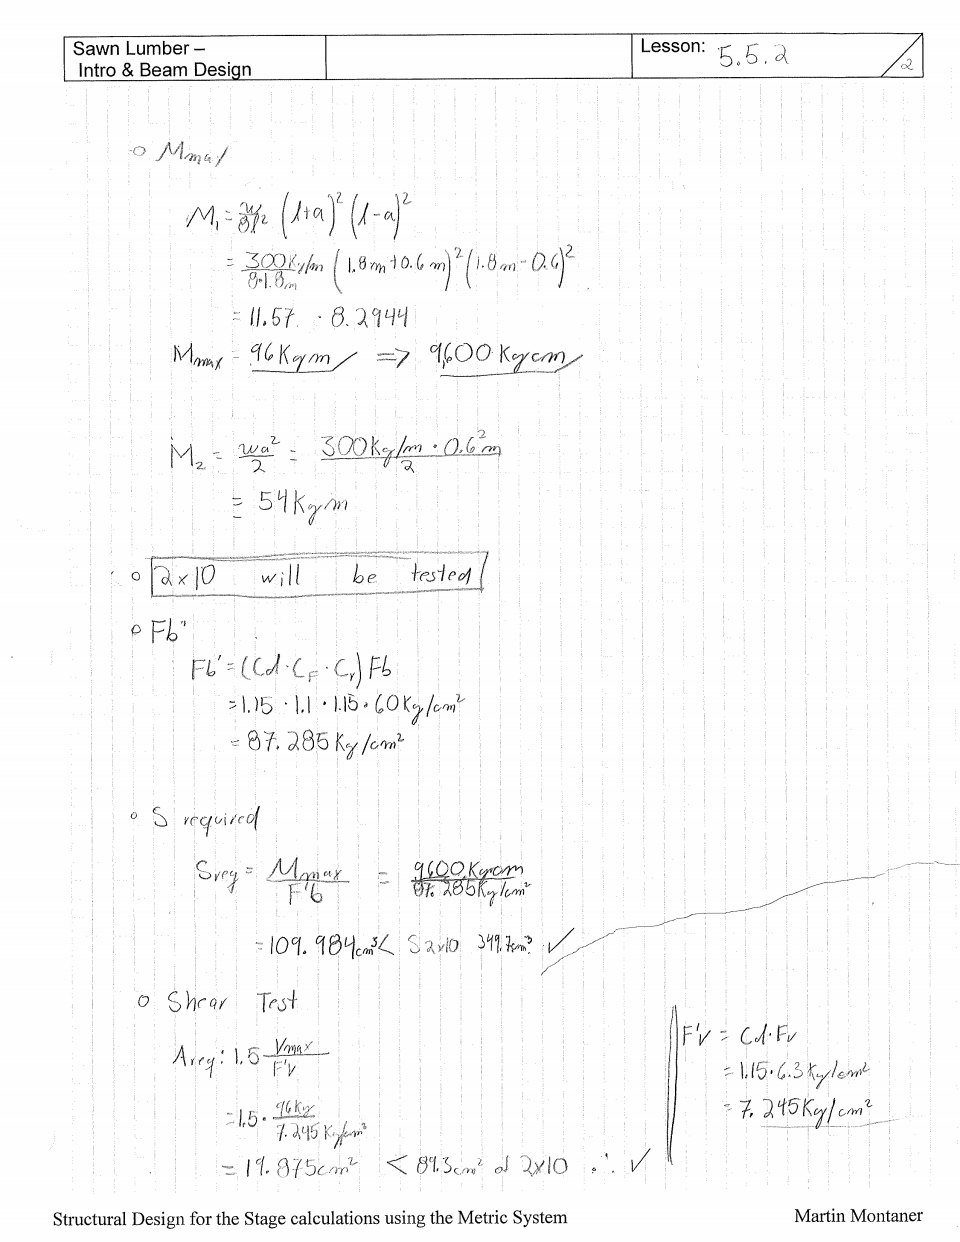 Sawn Lumber –
Intro & Beam Design
Lesson: 5.5.2
2
o Mmax
M₁ = w/8l² (l+a)² (l-a)²
= 300Kg/m/8·1.8m (1.8m+0.6m)² (1.8m-0.6)²
= 11.57 · 8.2944
Mmax = 96Kgm => 9,600Kgcm
M₂ = wa²/2 = 300Kg/m · 0.6²m/2
= 54Kgm
o 2x10 will be tested
o Fb'
Fb' = (Cd·C_F·Cr) Fb
= 1.15 · 1.1 · 1.15 · 60Kg/cm²
= 87.285Kg/cm²
o S required
Sreq = Mmax/F'b = 9600Kgcm/87.285Kg/cm²
= 109.984cm³ < S2x10 349.7cm³ ✓
o Shear Test
Areq: 1.5 Vmax/F'v
= 1.5 · 96Kg/7.245Kg/cm²
= 19.875cm² < 89.3cm² of 2x10 ∴ ✓
F'v = Cd·Fv
= 1.15·6.3Kg/cm²
= 7.245Kg/cm²
Structural Design for the Stage calculations using the Metric System
Martin Montaner